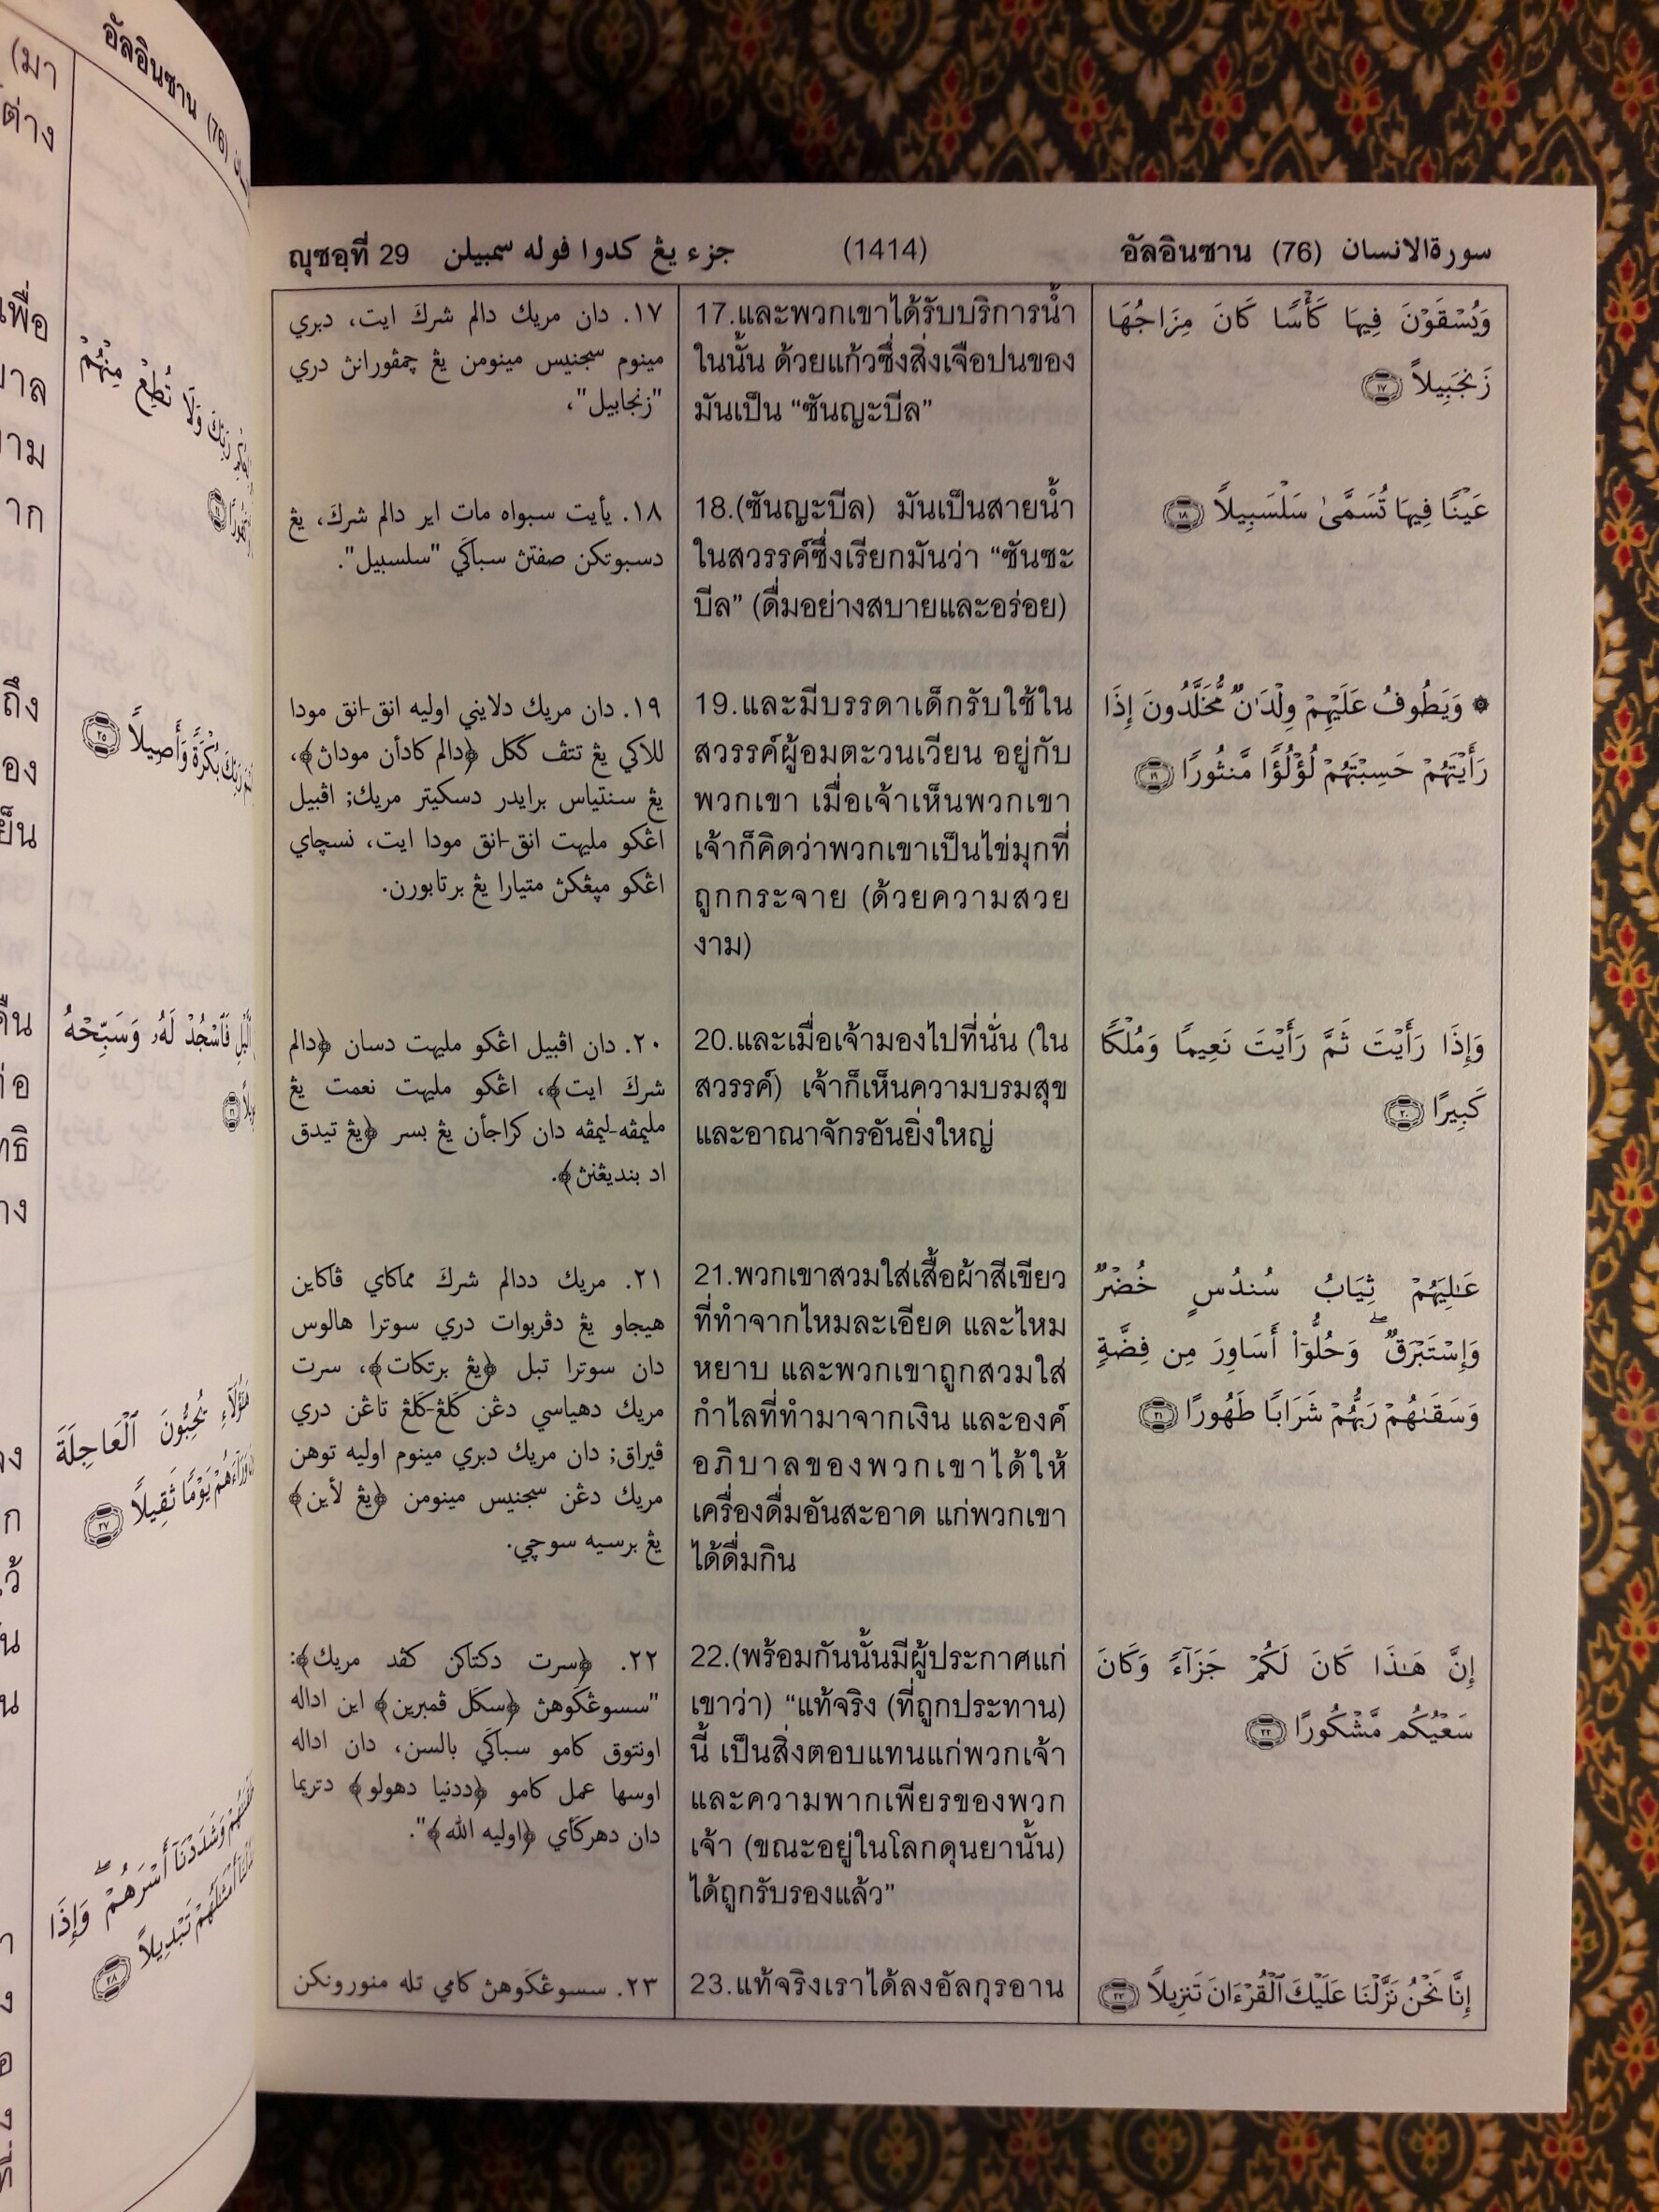 سورة الانسان (76) อัลอินซาน
(1414)
جزء يڠ كدوا ڤوله سمبيلن ญุซอฺที่ 29
وَيُسْقَوْنَ فِيهَا كَأْسًا كَانَ مِزَاجُهَا
زَنجَبِيلاً ۝١٧
عَيْنًا فِيهَا تُسَمَّىٰ سَلْسَبِيلاً ۝١٨
۞ وَيَطُوفُ عَلَيْهِمْ وِلْدَٰنٌ مُّخَلَّدُونَ إِذَا
رَأَيْتَهُمْ حَسِبْتَهُمْ لُؤْلُؤًا مَّنثُورًا ۝١٩
وَإِذَا رَأَيْتَ ثَمَّ رَأَيْتَ نَعِيمًا وَمُلْكًا
كَبِيرًا ۝٢٠
عَٰلِيَهُمْ ثِيَابُ سُندُسٍ خُضْرٌ
وَإِسْتَبْرَقٌ ۖ وَحُلُّوٓا۟ أَسَاوِرَ مِن فِضَّةٍ
وَسَقَىٰهُمْ رَبُّهُمْ شَرَابًا طَهُورًا ۝٢١
إِنَّ هَٰذَا كَانَ لَكُمْ جَزَآءً وَكَانَ
سَعْيُكُم مَّشْكُورًا ۝٢٢
إِنَّا نَحْنُ نَزَّلْنَا عَلَيْكَ ٱلْقُرْءَانَ تَنزِيلاً ۝٢٣
17.และพวกเขาได้รับบริการน้ำ
ในนั้น ด้วยแก้วซึ่งสิ่งเจือปนของ
มันเป็น “ซันญะบีล”
18.(ซันญะบีล) มันเป็นสายน้ำ
ในสวรรค์ซึ่งเรียกมันว่า “ซันซะ
บีล” (ดื่มอย่างสบายและอร่อย)
19.และมีบรรดาเด็กรับใช้ใน
สวรรค์ผู้อมตะวนเวียน อยู่กับ
พวกเขา เมื่อเจ้าเห็นพวกเขา
เจ้าก็คิดว่าพวกเขาเป็นไข่มุกที่
ถูกกระจาย (ด้วยความสวย
งาม)
20.และเมื่อเจ้ามองไปที่นั่น (ใน
สวรรค์) เจ้าก็เห็นความบรมสุข
และอาณาจักรอันยิ่งใหญ่
21.พวกเขาสวมใส่เสื้อผ้าสีเขียว
ที่ทำจากไหมละเอียด และไหม
หยาบ และพวกเขาถูกสวมใส่
กำไลที่ทำมาจากเงิน และองค์
อภิบาลของพวกเขาได้ให้
เครื่องดื่มอันสะอาด แก่พวกเขา
ได้ดื่มกิน
22.(พร้อมกันนั้นมีผู้ประกาศแก่
เขาว่า) “แท้จริง (ที่ถูกประทาน)
นี้ เป็นสิ่งตอบแทนแก่พวกเจ้า
และความพากเพียรของพวก
เจ้า (ขณะอยู่ในโลกดุนยานั้น)
ได้ถูกรับรองแล้ว”
23.แท้จริงเราได้ลงอัลกุรอาน
١٧. دان مريك دالم شرݢ ايت، دبري
مينوم سجنيس مينومن يڠ چمڤورانڽ دري
"زنجابيل"،
١٨. يأيت سبواه مات اير دالم شرݢ، يڠ
دسبوتكن صفتڽ سباݢي "سلسبيل".
١٩. دان مريك دلايني اوليه انق-انق مودا
للاكي يڠ تتڤ ككل ﴿دالم كادأن موداڽ﴾،
يڠ سنتياس برايدر دسكيتر مريك; اڤبيل
اڠكو مليهت انق-انق مودا ايت، نسچاي
اڠكو مڽڠكڽ متيارا يڠ برتابورن.
٢٠. دان اڤبيل اڠكو مليهت دسان ﴿دالم
شرݢ ايت﴾، اڠكو مليهت نعمت يڠ
مليمڤه-ليمڤه دان كراجأن يڠ بسر ﴿يڠ تيدق
اد بنديڠنڽ﴾.
٢١. مريك ددالم شرݢ مماكاي ڤاكاين
هيجاو يڠ دڤربوات دري سوترا هالوس
دان سوترا تبل ﴿يڠ برتكات﴾، سرت
مريك دهياسي دڠن ݢلڠ-ݢلڠ تاڠن دري
ڤيراق; دان مريك دبري مينوم اوليه توهن
مريك دڠن سجنيس مينومن ﴿يڠ لأين﴾
يڠ برسيه سوچي.
٢٢. ﴿سرت دكتاكن كڤد مريك﴾:
"سسوڠݢوهڽ ﴿سݢل ڤمبرين﴾ اين اداله
اونتوق كامو سباݢي بالسن، دان اداله
اوسها عمل كامو ﴿ددنيا دهولو﴾ دتريما
دان دهرݢأي ﴿اوليه الله﴾".
٢٣. سسوڠݢوهڽ كامي تله منورونكن
อัลอินซาน (76)
وَلَا تُطِعْ مِنْهُمْ
بُكْرَةً وَأَصِيلاً ۝٢٥
فَٱسْجُدْ لَهُۥ وَسَبِّحْهُ
يُحِبُّونَ ٱلْعَاجِلَةَ
يَوْمًا ثَقِيلاً ۝٢٧
وَشَدَدْنَآ أَسْرَهُمْ ۖ وَإِذَا
تَبْدِيلاً ۝٢٨